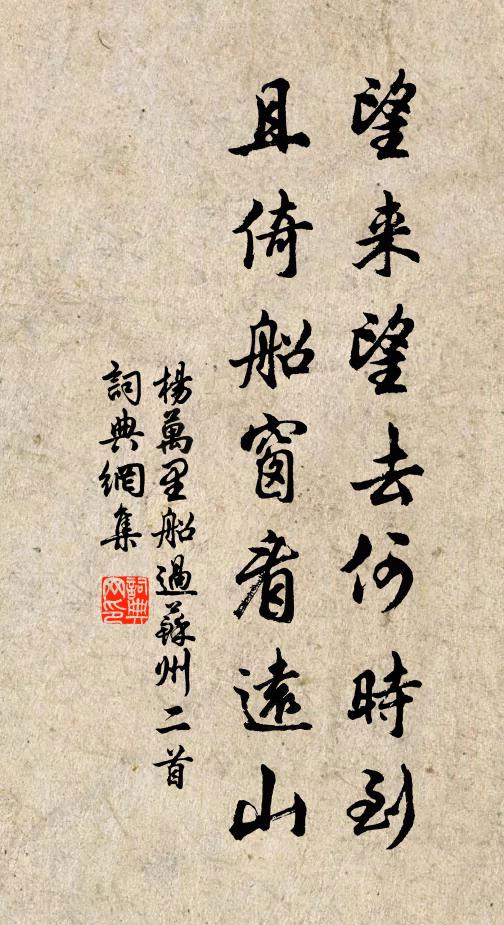 望来望去何時到
且倚船窗看遠山
楊萬里船過蘇州二首
詞典網集
詞典網印